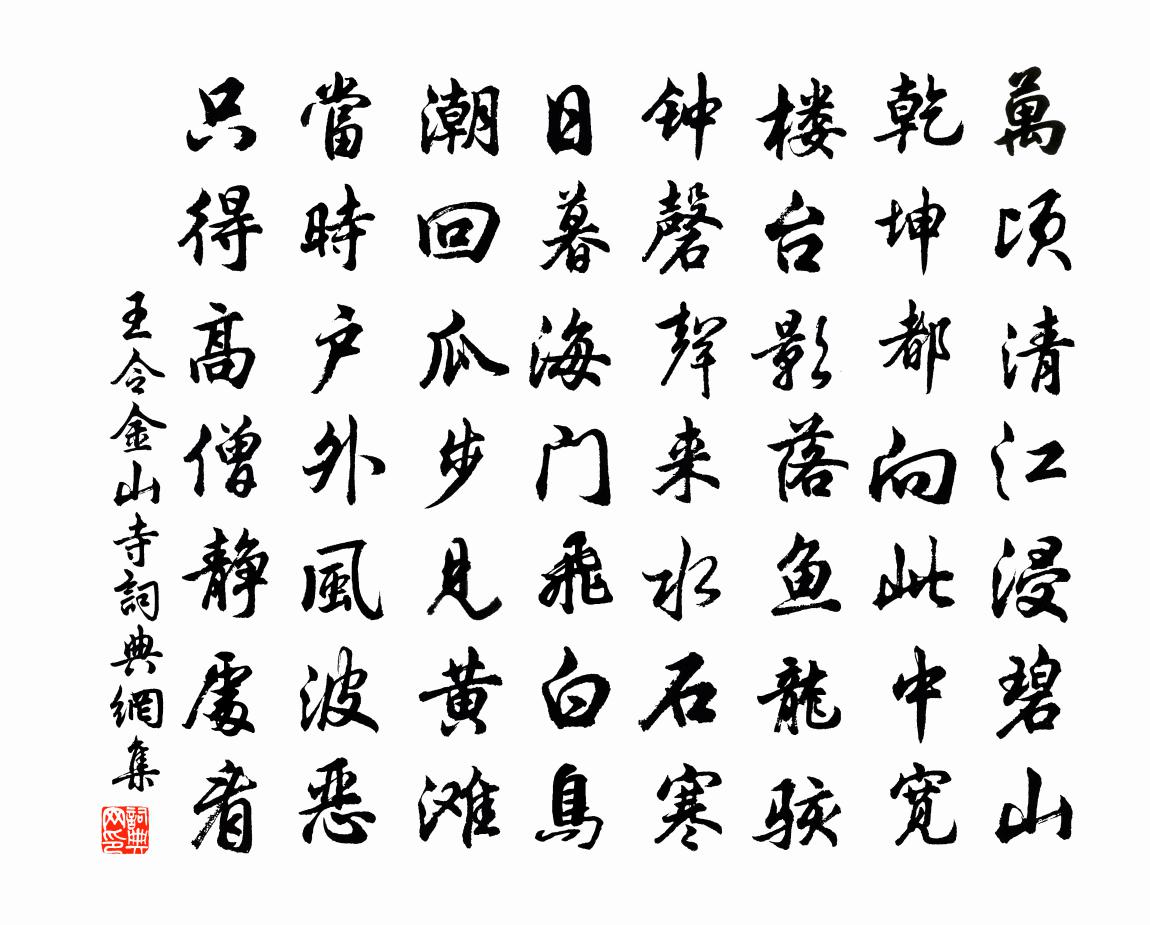 萬頃清江浸碧山
乾坤都向此中寬
楼台影落鱼龍駭
钟磬聲来水石寒
日暮海门飛白鳥
潮回瓜步見黄滩
當時户外風波恶
只得高僧静處看
王令金山寺詞典網集
詞典網印